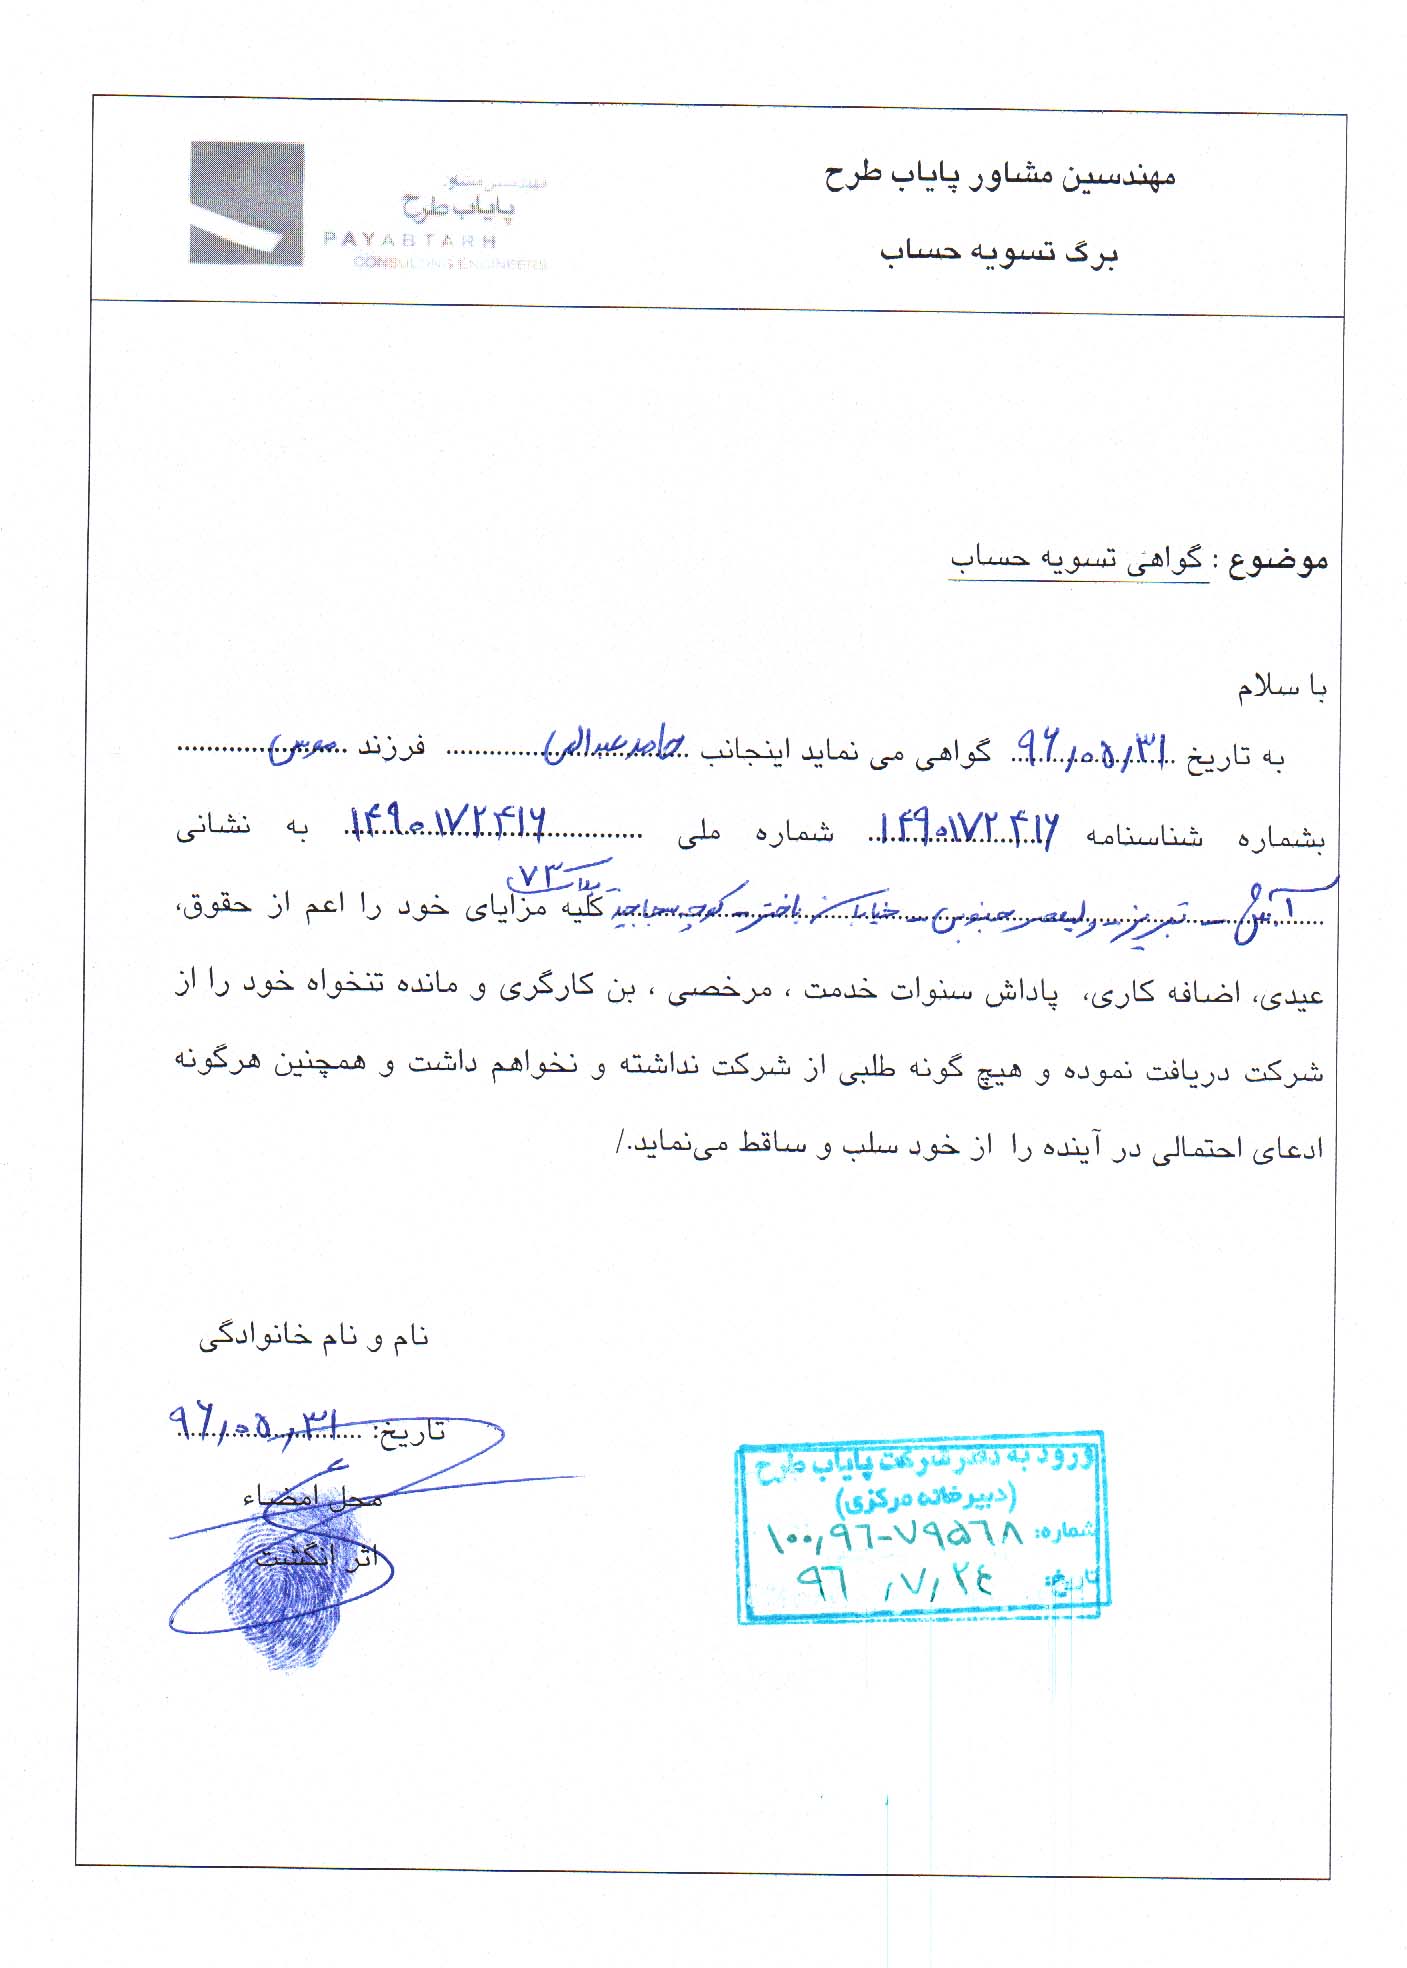 مهندسین مشاور پایاب طرح
برگ تسویه حساب
مهندسین مشاور
پایاب طرح
PAYABTARH
CONSULTING ENGINEERS
موضوع : گواهی تسویه حساب
با سلام
به تاریخ ۹۶/۰۵/۳۱ گواهی می نماید اینجانب حامد فرزند موسی
بشماره شناسنامه ۱۴۹۰۱۷۲۴۱۶ شماره ملی ۱۴۹۰۱۷۲۴۱۶ به نشانی
تبریز - ولیعصر جنوبی - خیابان باختر - کوچه پلاک ۷۳ کلیه مزایای خود را اعم از حقوق،
عیدی، اضافه کاری، پاداش سنوات خدمت ، مرخصی ، بن کارگری و مانده تنخواه خود را از
شرکت دریافت نموده و هیچ گونه طلبی از شرکت نداشته و نخواهم داشت و همچنین هرگونه
ادعای احتمالی در آینده را از خود سلب و ساقط می‌نماید./
نام و نام خانوادگی
تاریخ: ۹۶/۰۵/۳۱
محل امضاء
اثر انگشت
ورود به دفتر شرکت پایاب طرح
(دبیرخانه مرکزی)
شماره: ۱۰۰/۹۶-۷۹۵۶۸
تاریخ: ۹۶/۷/۲۴